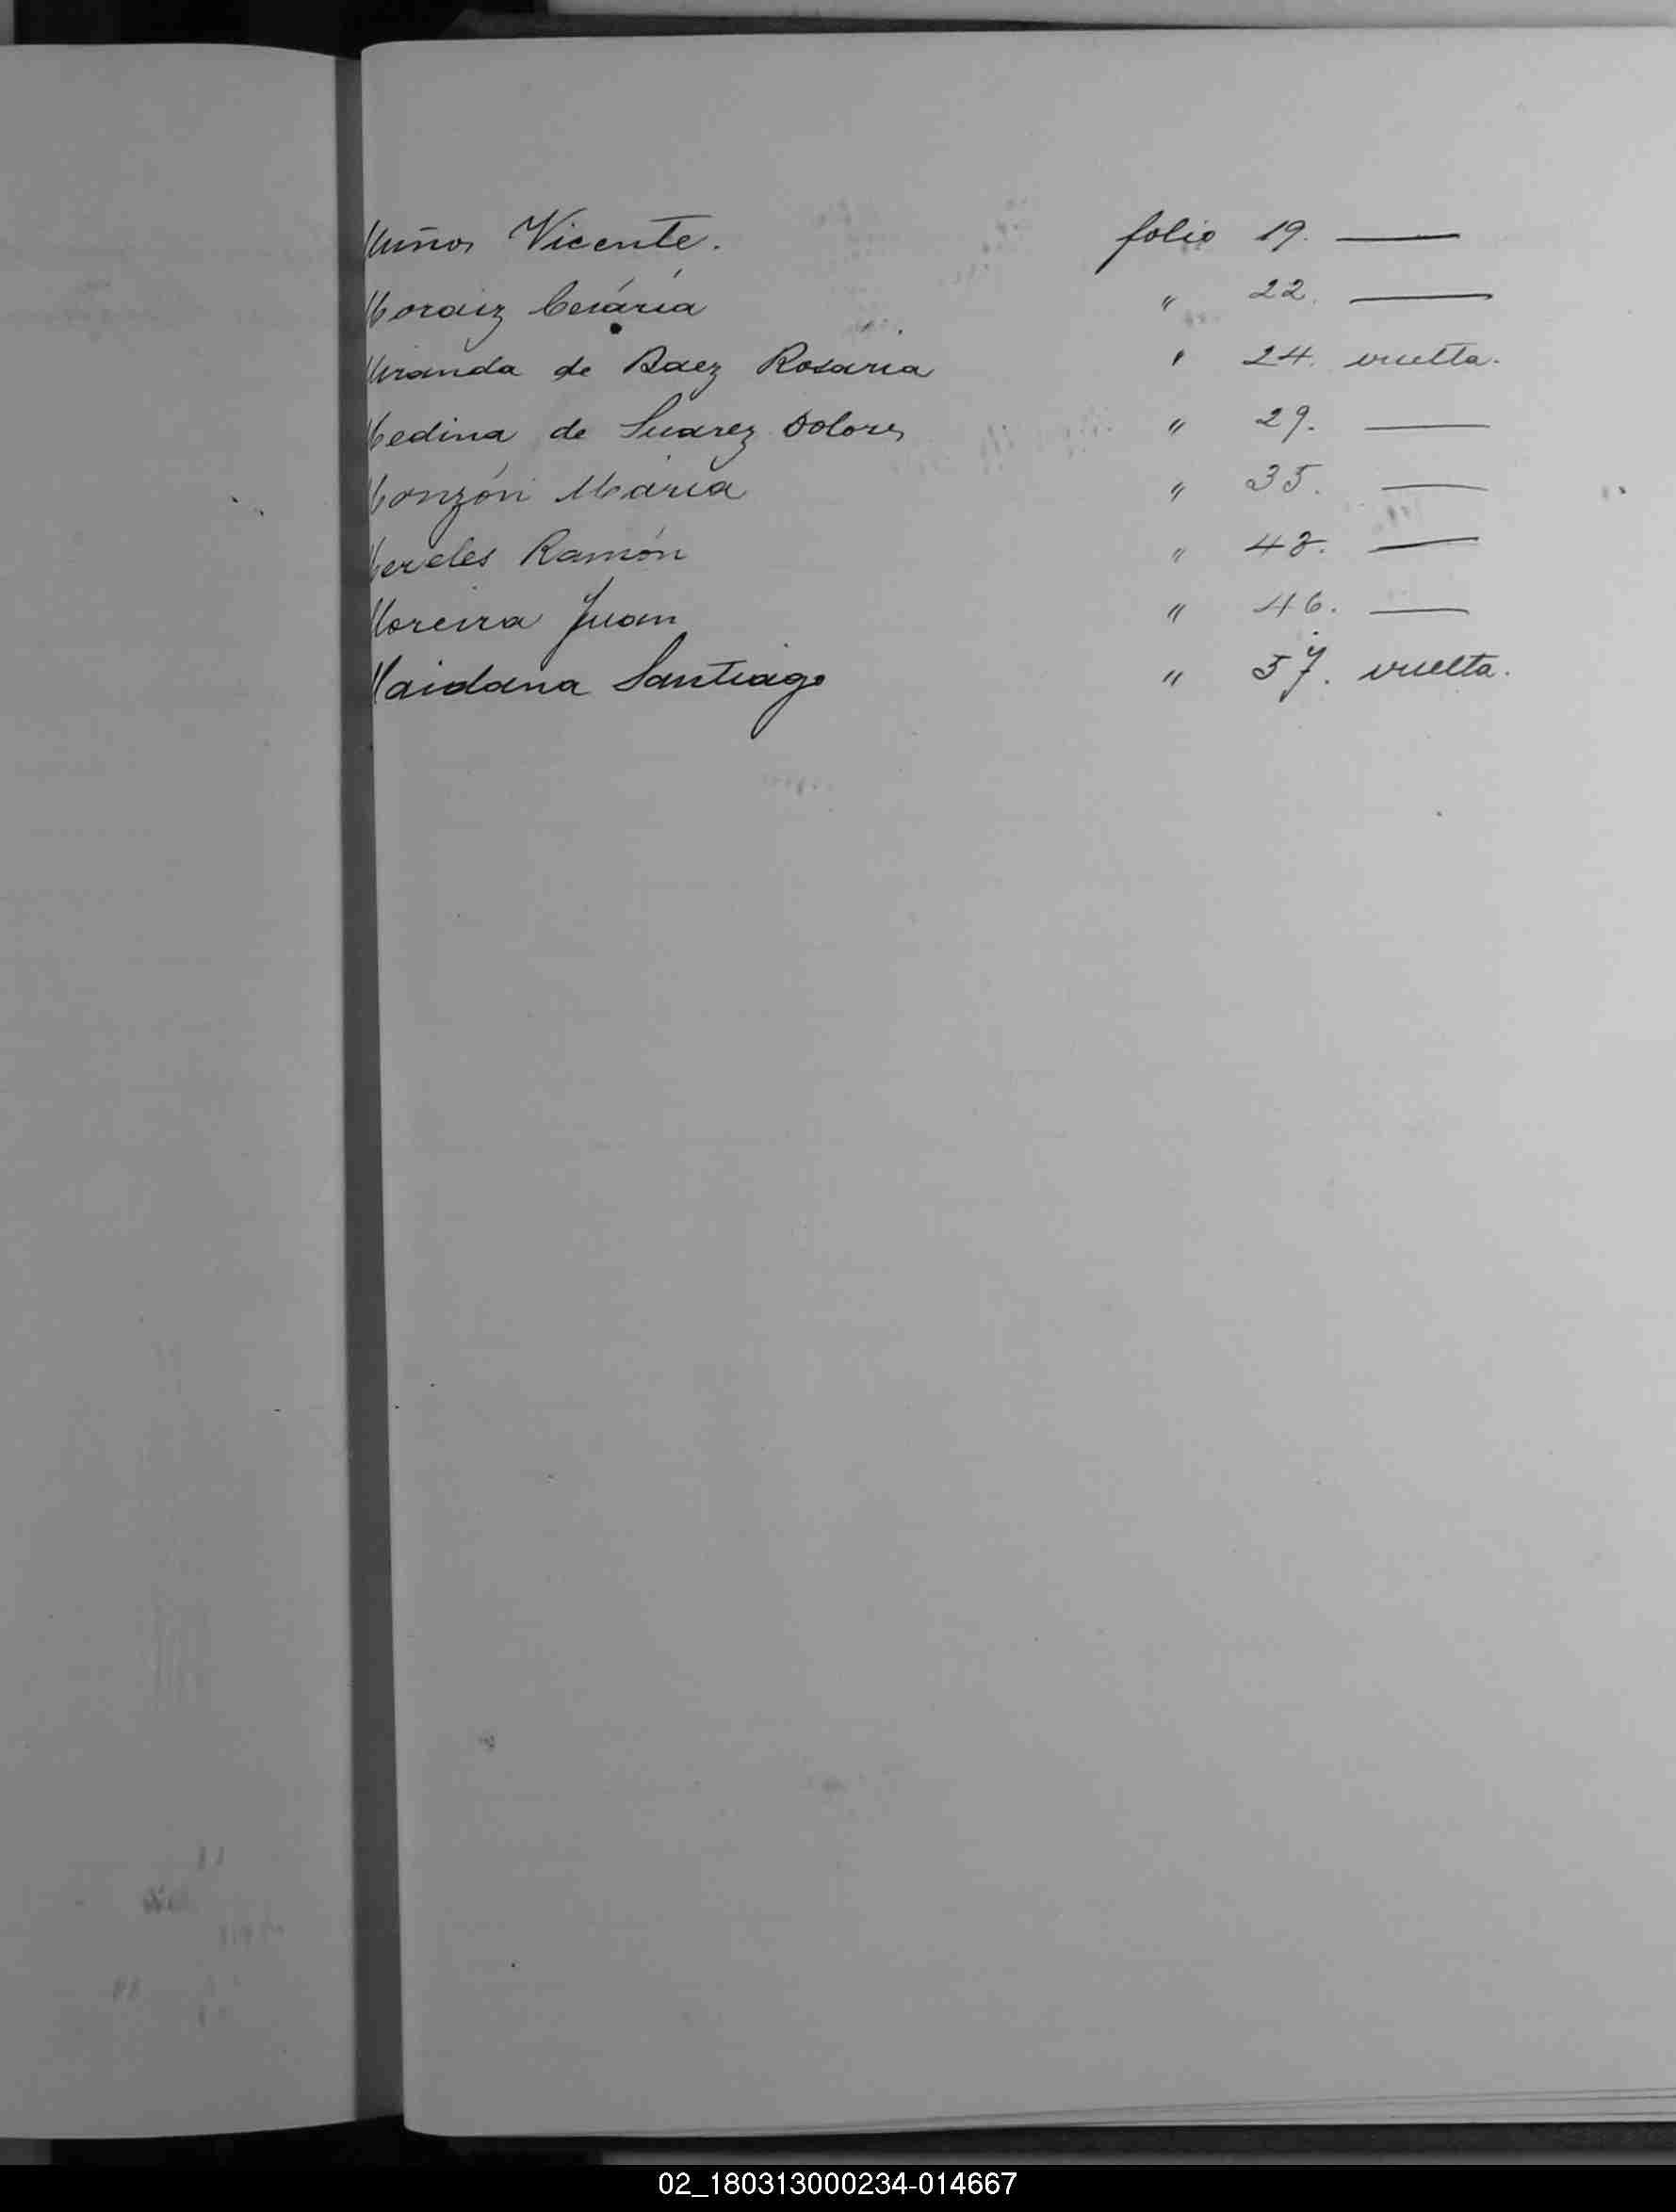 Muños Vicente. folio 19. ——
Moraiz Cesária " 22. ——
Miranda de Baez Rosaria " 24. vuelta.
Medina de Suarez Dolores " 29. ——
Monzón María " 35. ——
Mereles Ramón " 43. ——
Moreira Juan " 46. ——
Maidana Santiago " 57. vuelta.
02_180313000234-014667